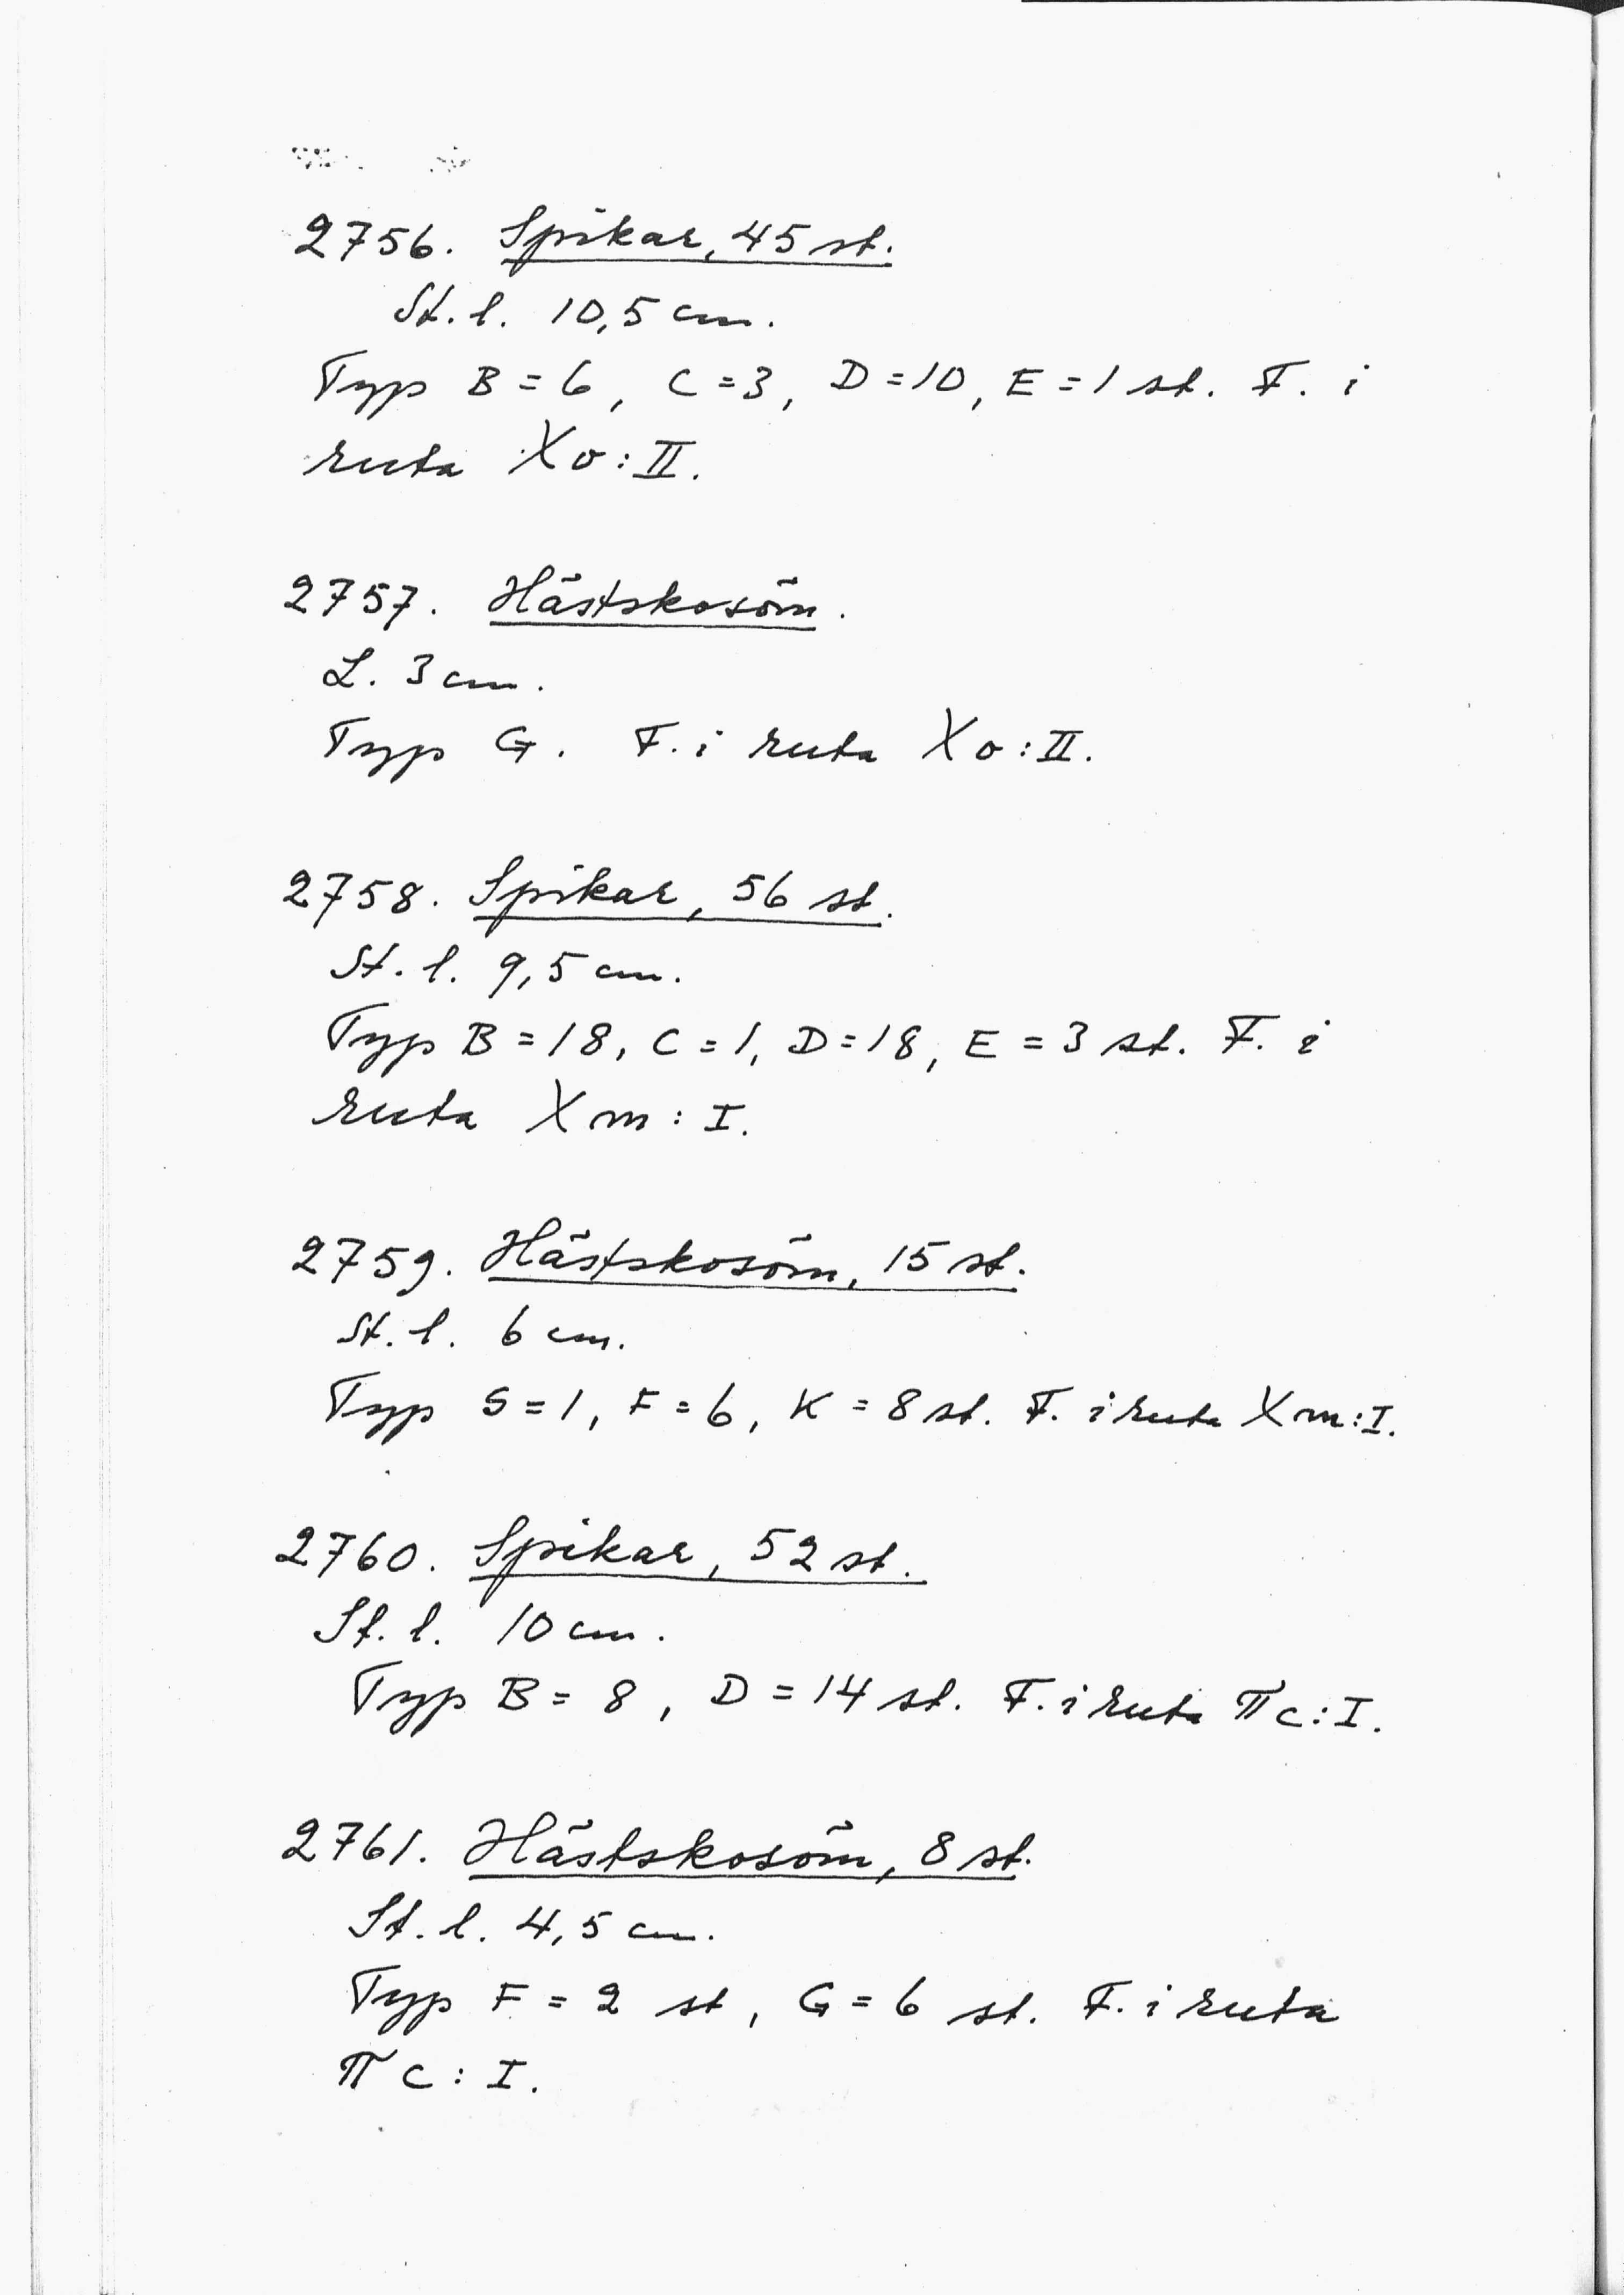 2756. Spikar, 45 st.
St. l. 10,5 cm.
Typ B = 6, C = 3, D = 10, E = 1 st. F. i
ruta Xo : II.
2757. Hästskosöm.
L. 3 cm.
Typ G. F. i ruta Xo : II.
2758. Spikar, 56 st.
St. l. 9,5 cm.
Typ B = 18, C = 1, D = 18, E = 3 st. F. i
ruta Xm : I.
2759. Hästskosöm, 15 st.
St. l. 6 cm.
Typ S = 1, F = 6, K = 8 st. F. i ruta Xm : I.
2760. Spikar, 52 st.
St. l. 10 cm.
Typ B = 8, D = 14 st. F. i ruta πc : I.
2761. Hästskosöm, 8 st.
St. l. 4,5 cm.
Typ F = 2 st, G = 6 st. F. i ruta
πc : I.